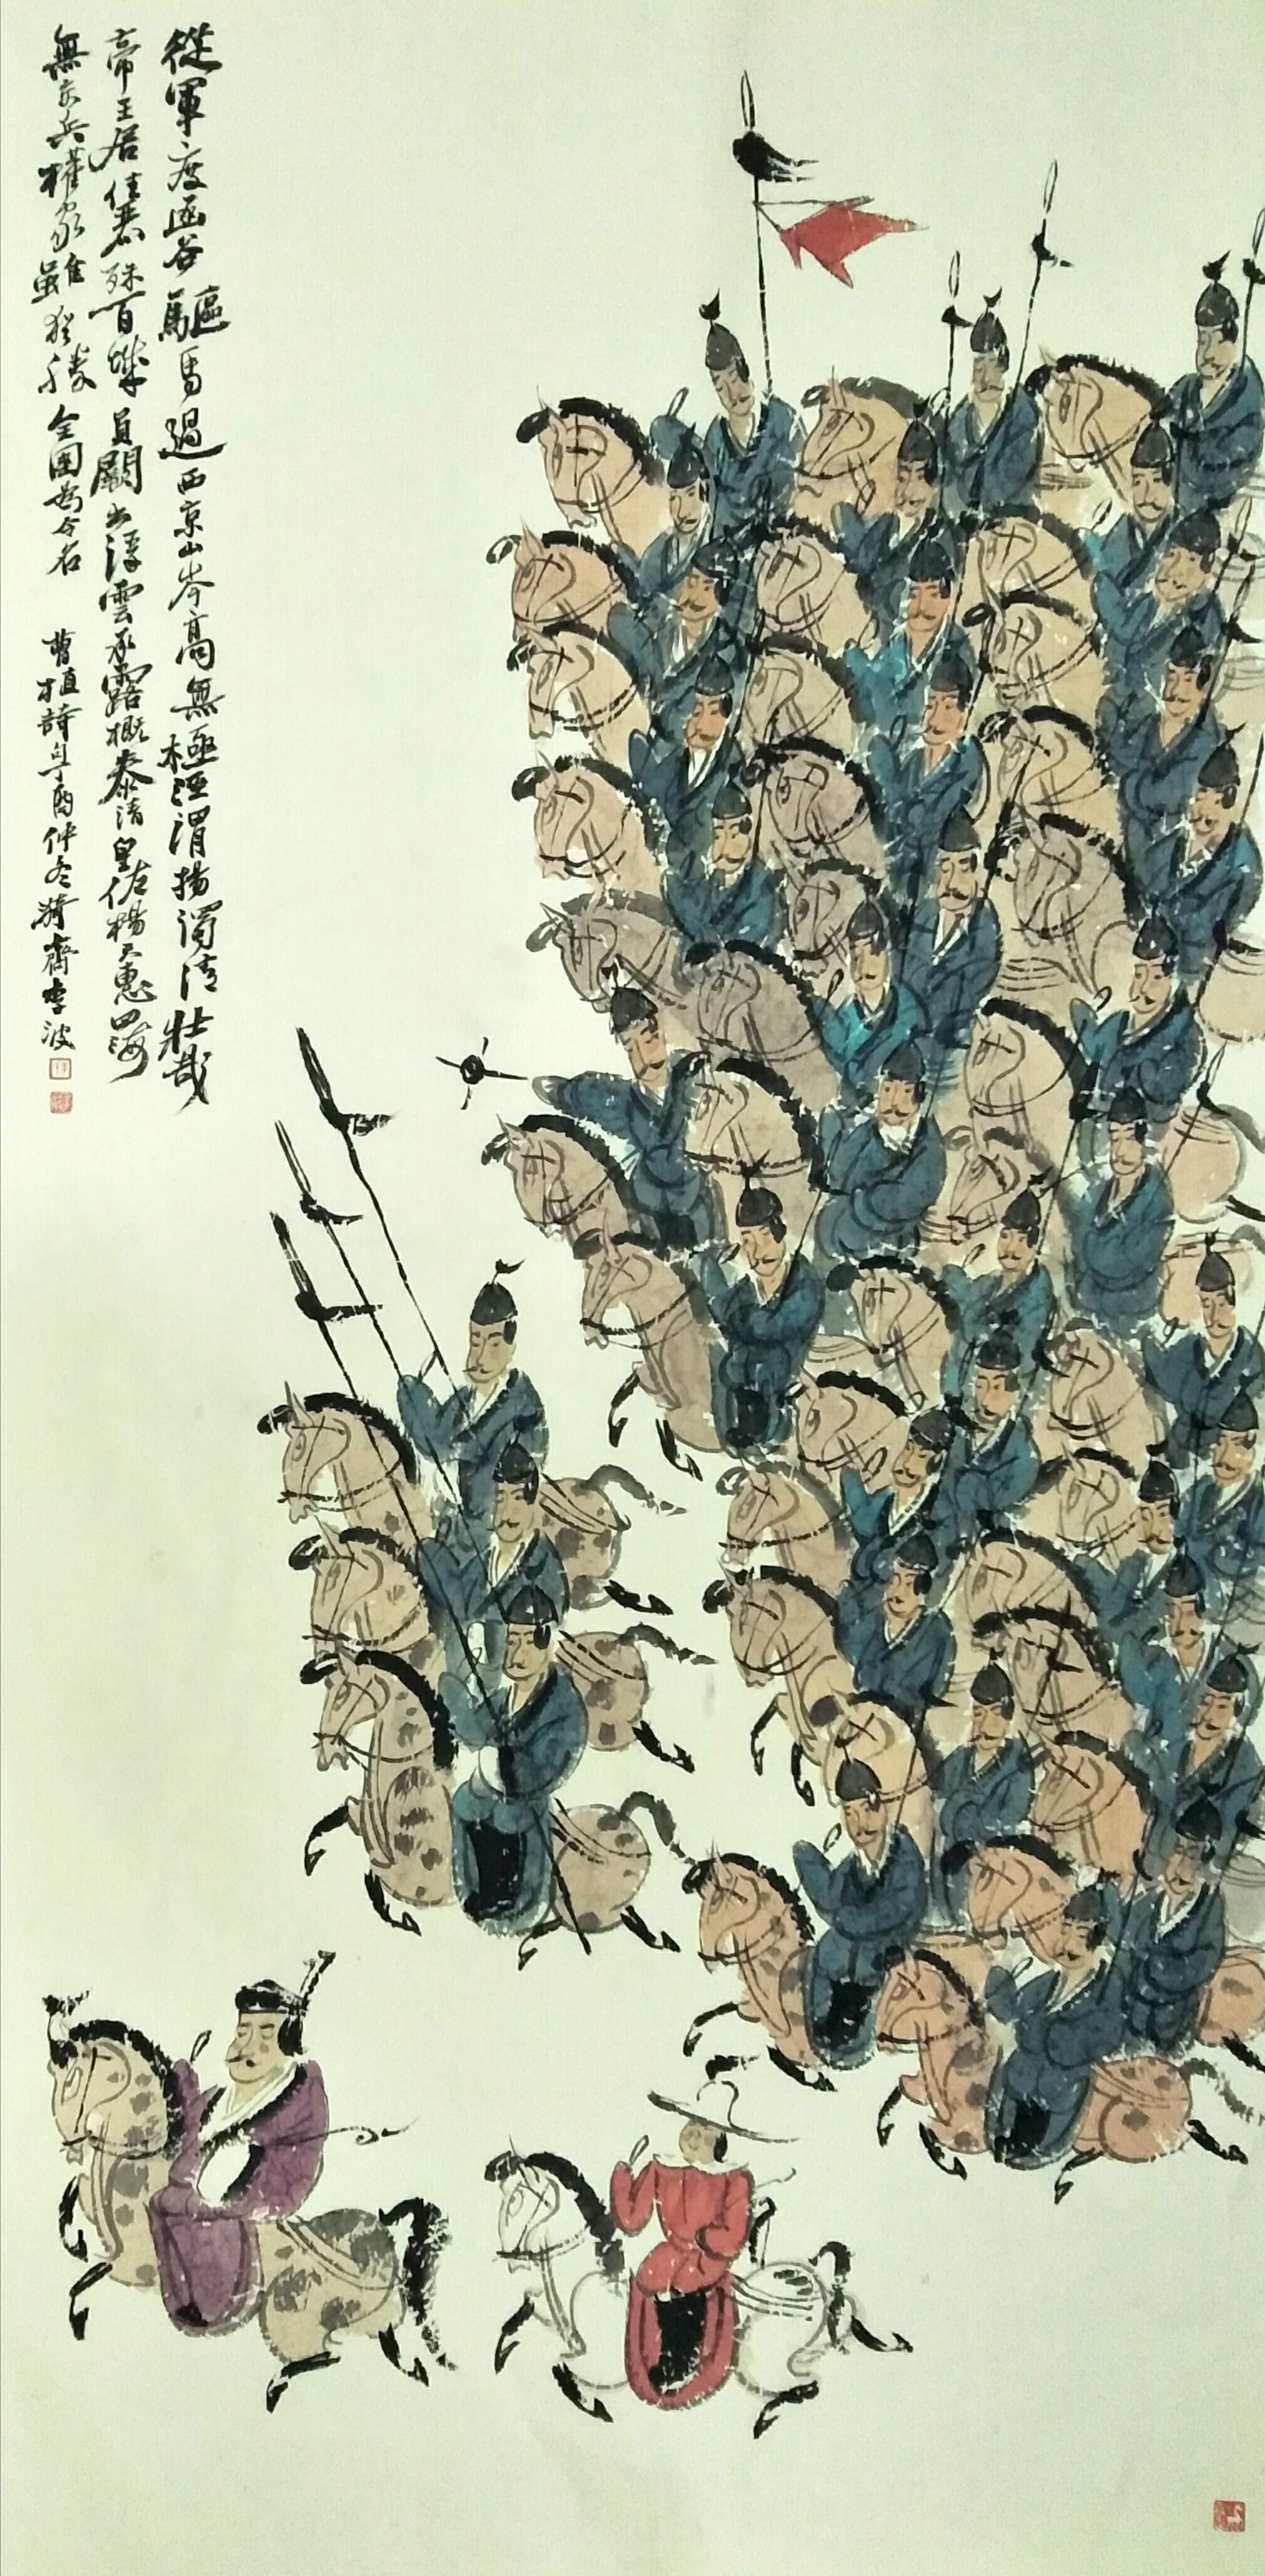 從軍度函谷驅馬過西京山岑高無極涇渭揚濁清壯哉
帝王居佳麗殊百城員闕出浮雲承露概泰清皇佐楊天惠四海
無交兵權家雖愛勝全國為令名 曹植詩 酉仲冬 齋李波